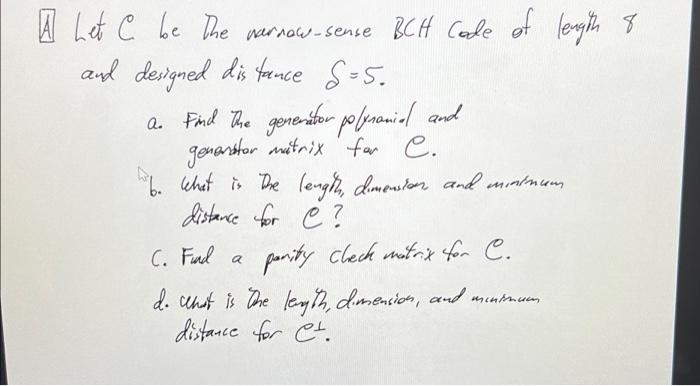 A Let C be The narrow-sense BCH Code of length 8
and designed distance δ=5.
a. Find The generator polynomial and
generator matrix for C.
b. What is The length, dimension and minimum
distance for C?
C. Find a parity check matrix for C.
d. What is The length, dimension, and minimum
distance for C⊥.